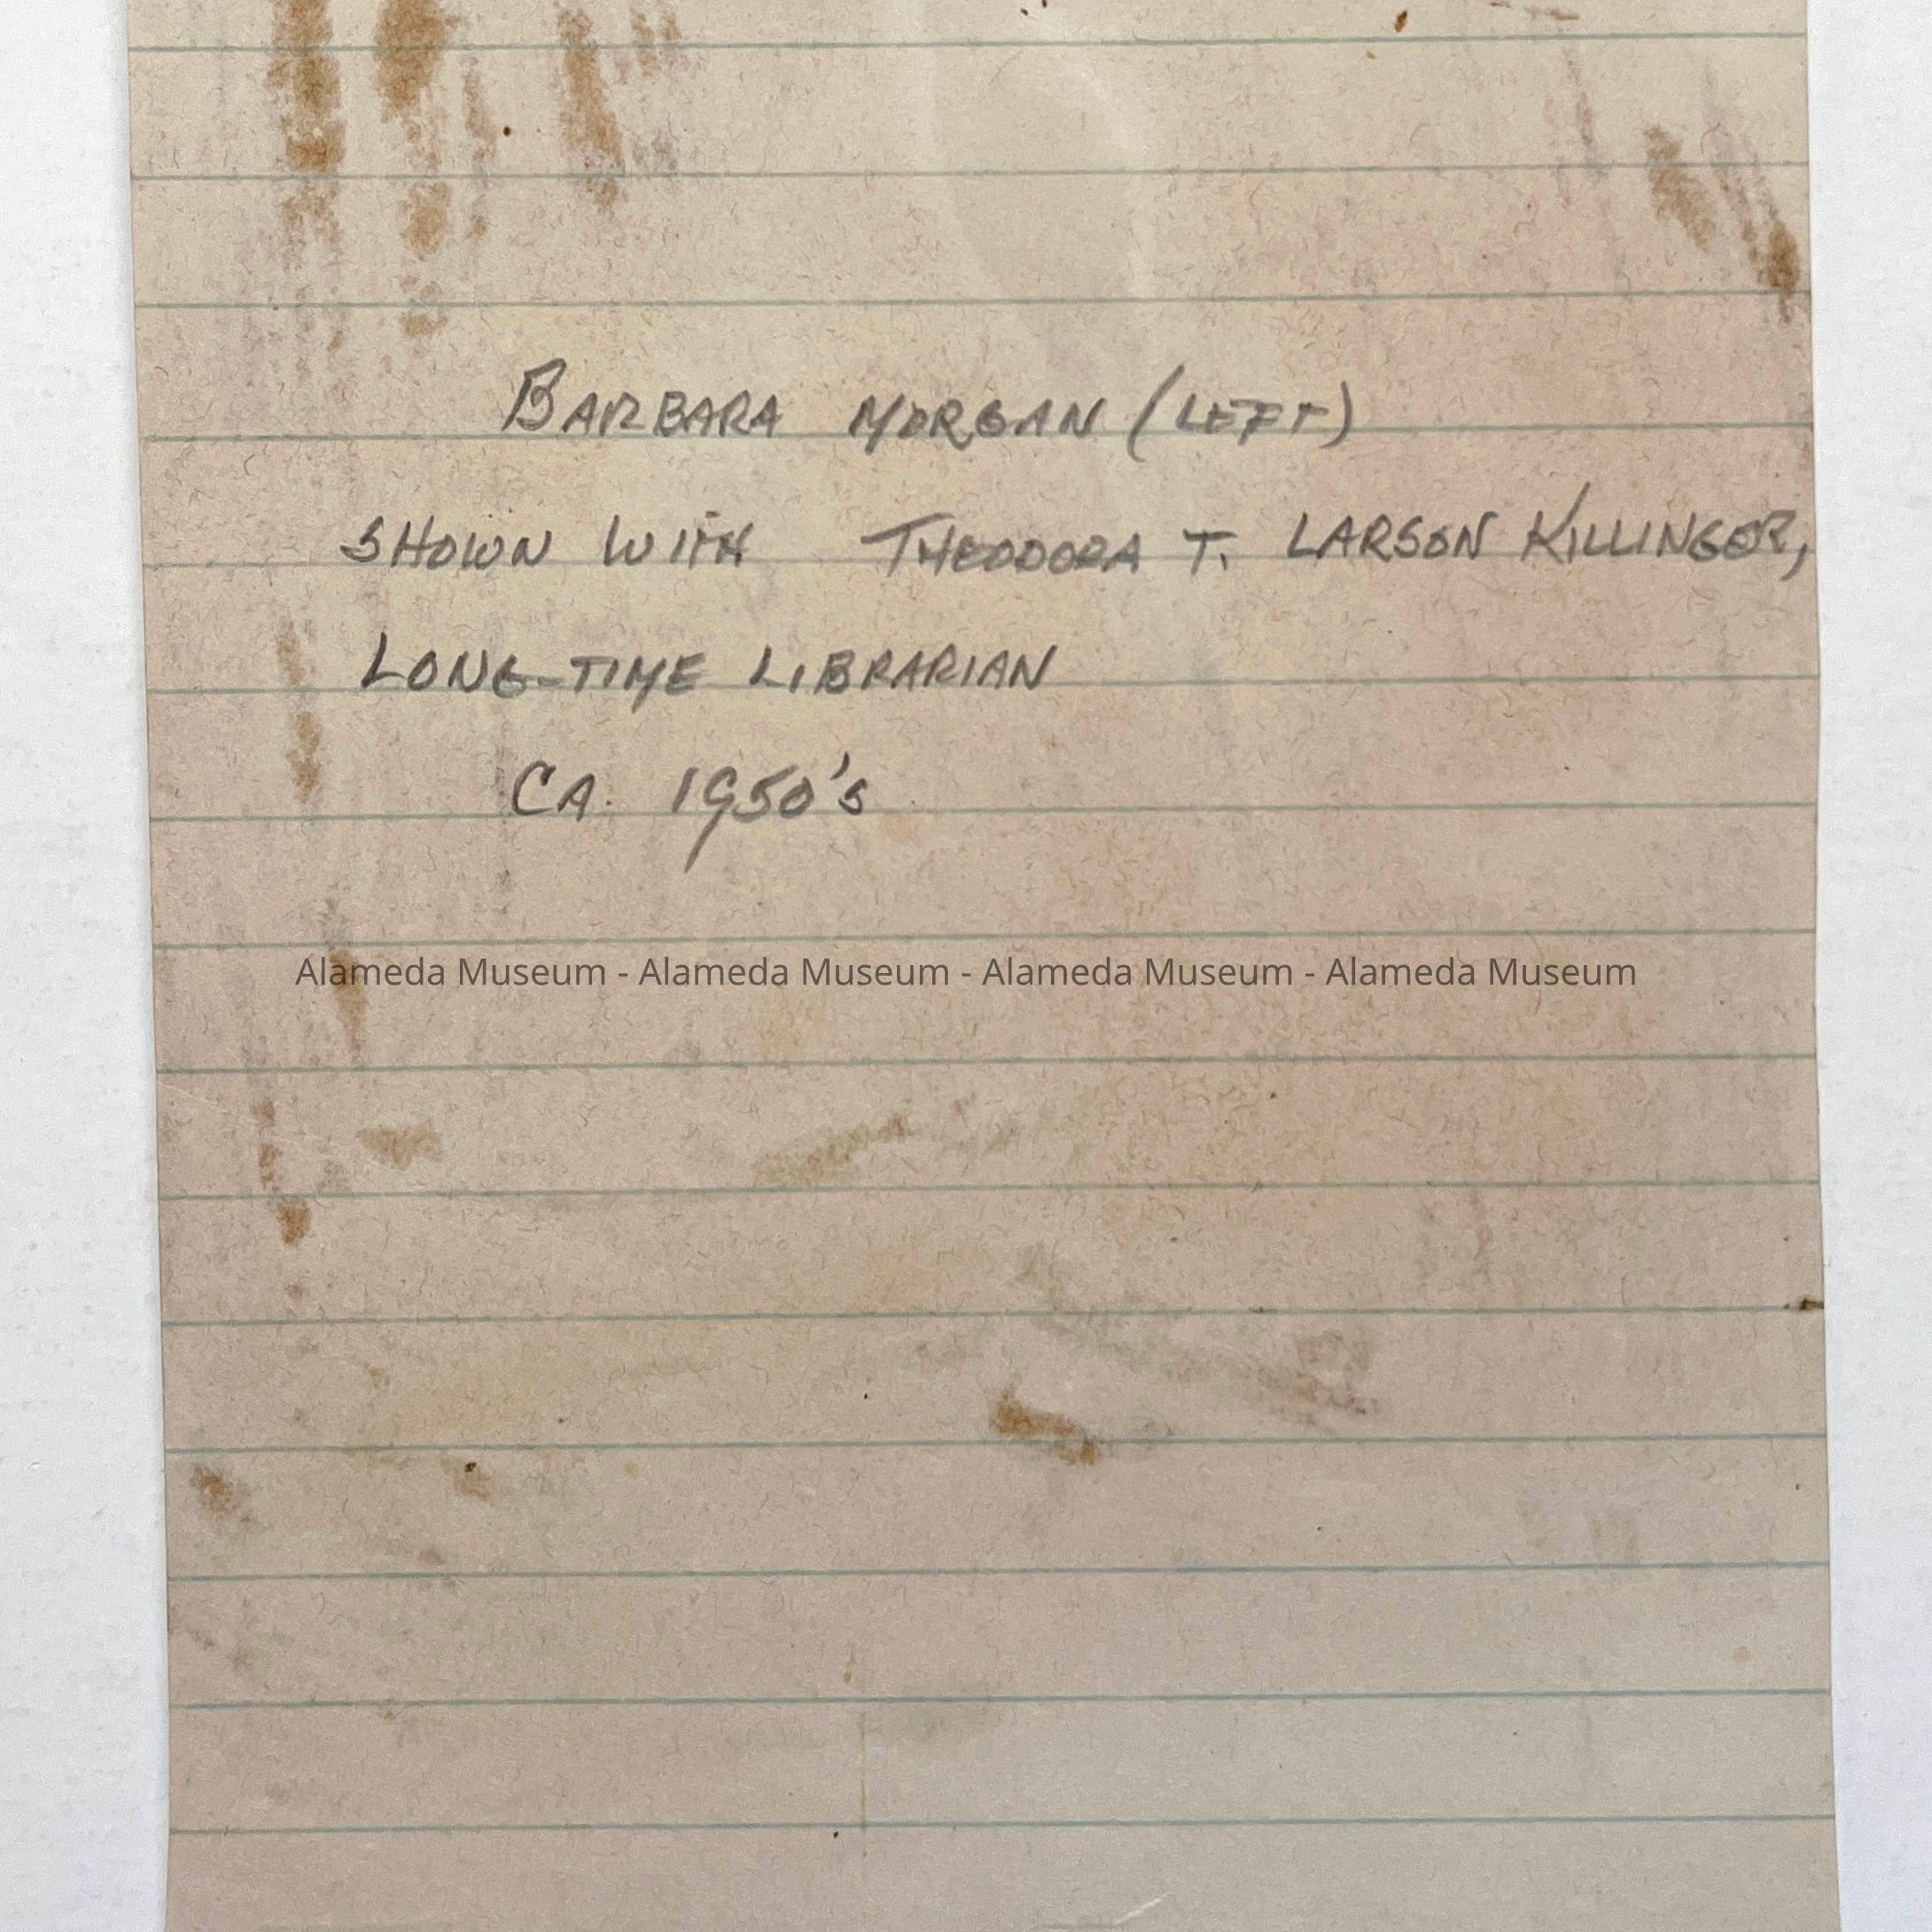 BARBARA MORGAN (LEFT)
SHOWN WITH THEODORA T. LARSON KILLINGER,
LONG-TIME LIBRARIAN
CA. 1950's
Alameda Museum - Alameda Museum - Alameda Museum - Alameda Museum